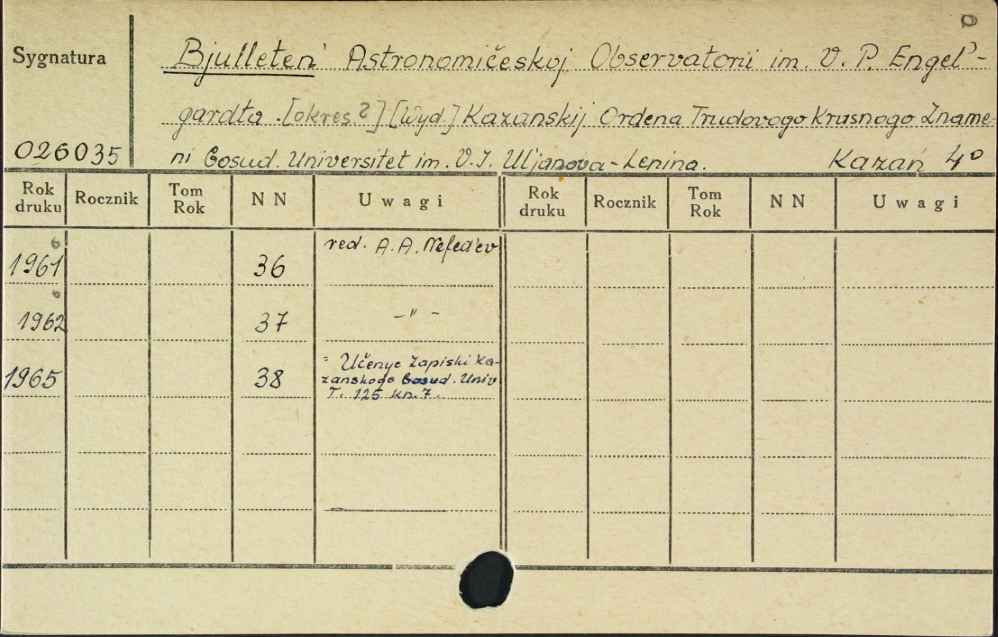 Sygnatura
Bjulleten' Astronomičeskoj Observatorii im. V. P. Engel'-
gardta. [okres?] [Wyd.] Kazanskij Ordena Trudovogo Krasnogo Zname-
026035
ni Gosud. Universitet im. V. I. Uljanova-Lenina. Kazań 4°
Rok druku Rocznik Tom Rok NN Uwagi Rok druku Rocznik Tom Rok NN Uwagi
red. A. A. Nefed'ev
1961 36
1962 37 –"–
1965 38 = Učenye Zapiski Ka-
zanskogo Gosud. Univ
T. 125 kn. 7.